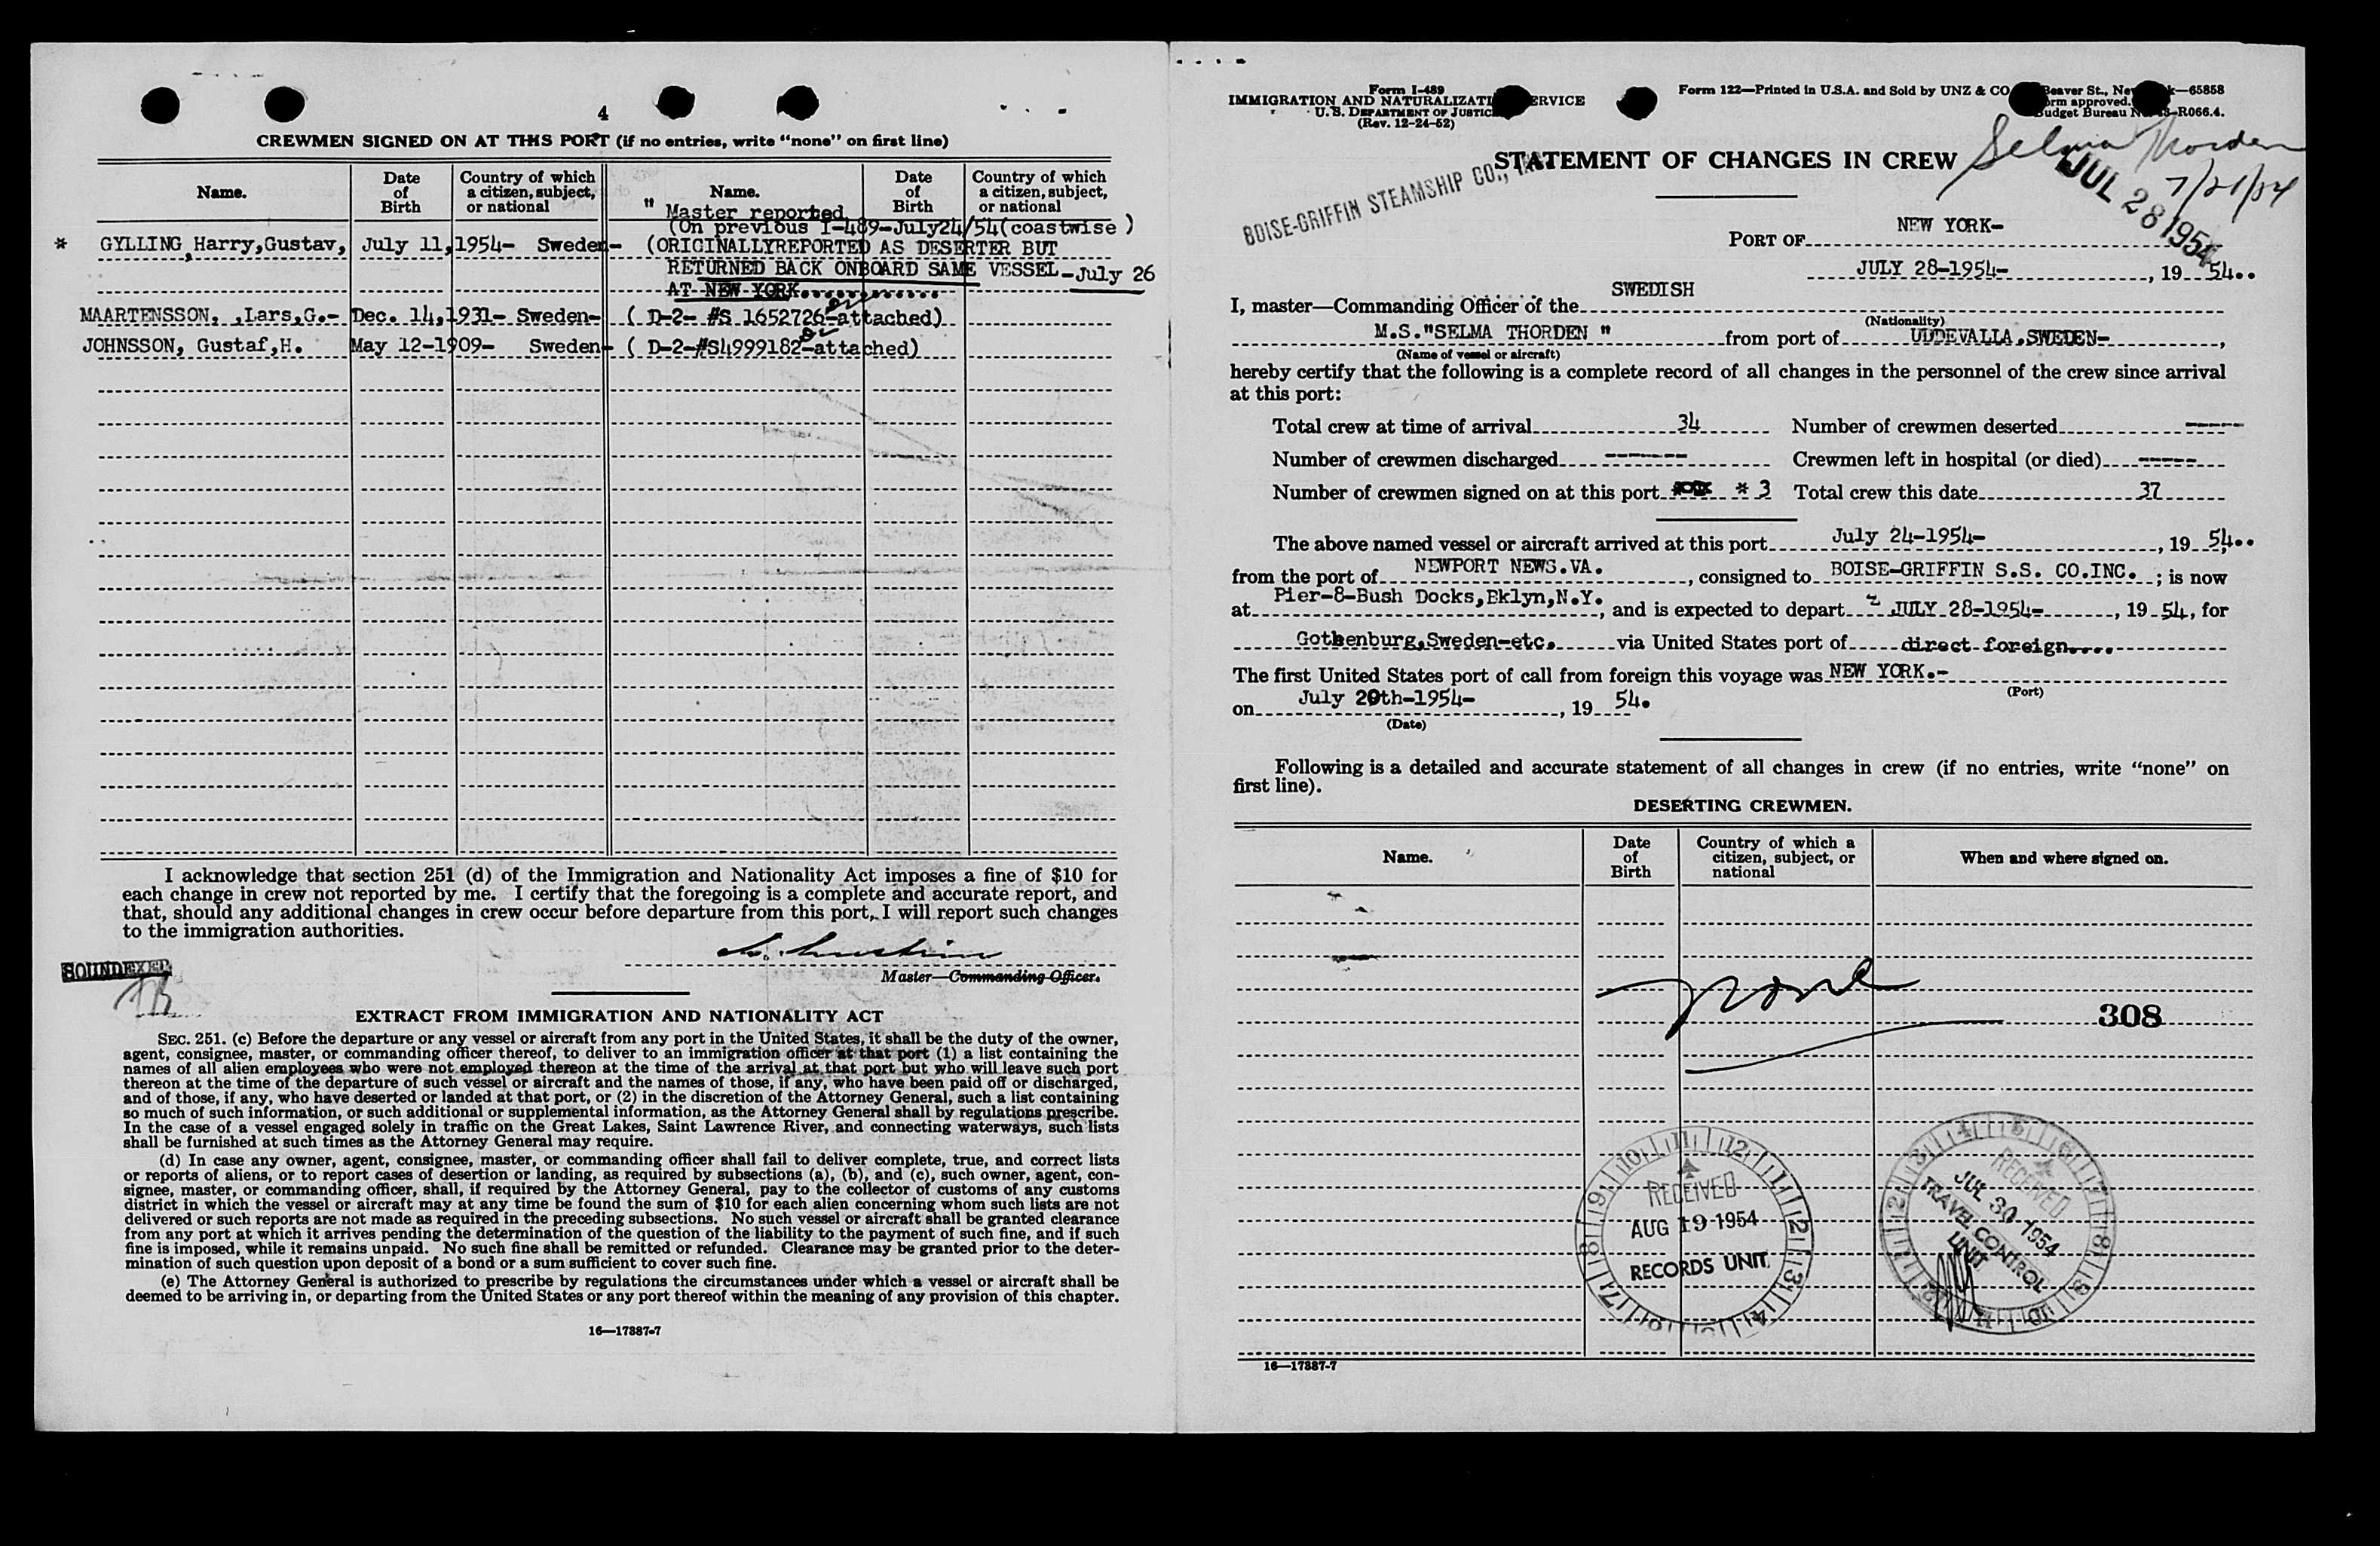 4
CREWMEN SIGNED ON AT THIS PORT (if no entries, write "none" on first line)
Name.
Date of Birth
Country of which a citizen, subject, or national
Name.
Date of Birth
Country of which a citizen, subject, or national
" Master reported
(On previous I-489-July24/54(coastwise )
* GYLLING, Harry,Gustav, July 11,1954- Sweden- (ORIGINALLYREPORTED AS DESERTER BUT
RETURNED BACK ONBOARD SAME VESSEL-July 26
AT NEW YORK.............
MAARTENSSON, ,Lars,G.- Dec. 14,1931- Sweden- ( D-2- #S 1652726-attached)
JOHNSSON, Gustaf,H. May 12-1909- Sweden- ( D-2-#S4999182-attached)
I acknowledge that section 251 (d) of the Immigration and Nationality Act imposes a fine of $10 for
each change in crew not reported by me. I certify that the foregoing is a complete and accurate report, and
that, should any additional changes in crew occur before departure from this port, I will report such changes
to the immigration authorities.
Master—Commanding Officer.
SOUNDEXED
EXTRACT FROM IMMIGRATION AND NATIONALITY ACT
SEC. 251. (c) Before the departure or any vessel or aircraft from any port in the United States, it shall be the duty of the owner,
agent, consignee, master, or commanding officer thereof, to deliver to an immigration officer at that port (1) a list containing the
names of all alien employees who were not employed thereon at the time of the arrival at that port but who will leave such port
thereon at the time of the departure of such vessel or aircraft and the names of those, if any, who have been paid off or discharged,
and of those, if any, who have deserted or landed at that port, or (2) in the discretion of the Attorney General, such a list containing
so much of such information, or such additional or supplemental information, as the Attorney General shall by regulations prescribe.
In the case of a vessel engaged solely in traffic on the Great Lakes, Saint Lawrence River, and connecting waterways, such lists
shall be furnished at such times as the Attorney General may require.
(d) In case any owner, agent, consignee, master, or commanding officer shall fail to deliver complete, true, and correct lists
or reports of aliens, or to report cases of desertion or landing, as required by subsections (a), (b), and (c), such owner, agent, con-
signee, master, or commanding officer, shall, if required by the Attorney General, pay to the collector of customs of any customs
district in which the vessel or aircraft may at any time be found the sum of $10 for each alien concerning whom such lists are not
delivered or such reports are not made as required in the preceding subsections. No such vessel or aircraft shall be granted clearance
from any port at which it arrives pending the determination of the question of the liability to the payment of such fine, and if such
fine is imposed, while it remains unpaid. No such fine shall be remitted or refunded. Clearance may be granted prior to the deter-
mination of such question upon deposit of a bond or a sum sufficient to cover such fine.
(e) The Attorney General is authorized to prescribe by regulations the circumstances under which a vessel or aircraft shall be
deemed to be arriving in, or departing from the United States or any port thereof within the meaning of any provision of this chapter.
16—17887-7
Form I-489
IMMIGRATION AND NATURALIZATI ERVICE
U. S. DEPARTMENT OF JUSTIC
(Rev. 12-24-52)
Form 122—Printed in U.S.A. and Sold by UNZ & CO Beaver St., Ne k—65858
orm approved.
udget Bureau N -R066.4.
STATEMENT OF CHANGES IN CREW
Selma Thorden
7/21/54
JUL 28 1954
BOISE-GRIFFIN STEAMSHIP CO., INC.
PORT OF NEW YORK-
JULY 28-1954- , 19 54..
I, master—Commanding Officer of the SWEDISH
(Nationality)
M.S."SELMA THORDEN " from port of UDDEVALLA,SWEDEN- ,
(Name of vessel or aircraft)
hereby certify that the following is a complete record of all changes in the personnel of the crew since arrival
at this port:
Total crew at time of arrival 34 Number of crewmen deserted -----
Number of crewmen discharged ------- Crewmen left in hospital (or died) -----
Number of crewmen signed on at this port * 3 Total crew this date 37
The above named vessel or aircraft arrived at this port July 24-1954- , 19 54..
from the port of NEWPORT NEWS.VA. , consigned to BOISE-GRIFFIN S.S. CO.INC. ; is now
at Pier-8-Bush Docks,Bklyn,N.Y. , and is expected to depart JULY 28-1954- , 19 54, for
Gothenburg,Sweden-etc. via United States port of direct foreign....
The first United States port of call from foreign this voyage was NEW YORK.-
(Port)
on July 20th-1954- , 19 54.
(Date)
Following is a detailed and accurate statement of all changes in crew (if no entries, write "none" on
first line).
DESERTING CREWMEN.
Name.
Date of Birth
Country of which a citizen, subject, or national
When and where signed on.
none
308
RECEIVED
AUG 19 1954
RECORDS UNIT
RECEIVED
JUL 30 1954
TRAVEL CONTROL
UNIT
16—17887-7